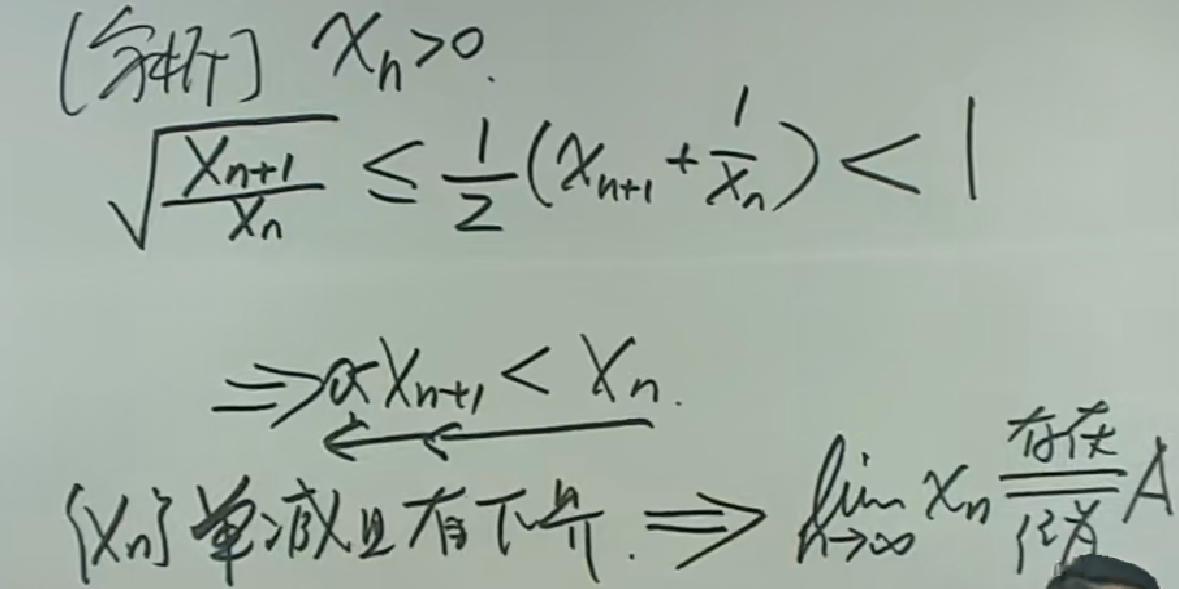 [分析] xₙ>0.
√(xₙ₊₁/xₙ) ≤ 1/2(xₙ₊₁+1/xₙ) < 1
⇒ 0<xₙ₊₁ < xₙ.
{xₙ}单减且有下界. ⇒ lim n→∞ xₙ 存在 记为 A